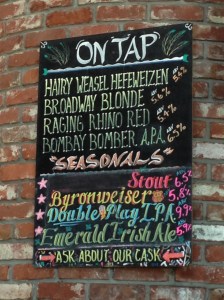 ON TAP
HAIRY WEASEL HEFEWEIZEN 5.6%
BROADWAY BLONDE 5%
RAGING RHINO RED
BOMBAY BOMBER A.P.A.
"SEASONALS"
Stout 6.5%
Byronweiser 5%
Double Play I.P.A 9.9%
Emerald Irish Ale 5.9%
ASK ABOUT OUR CASK